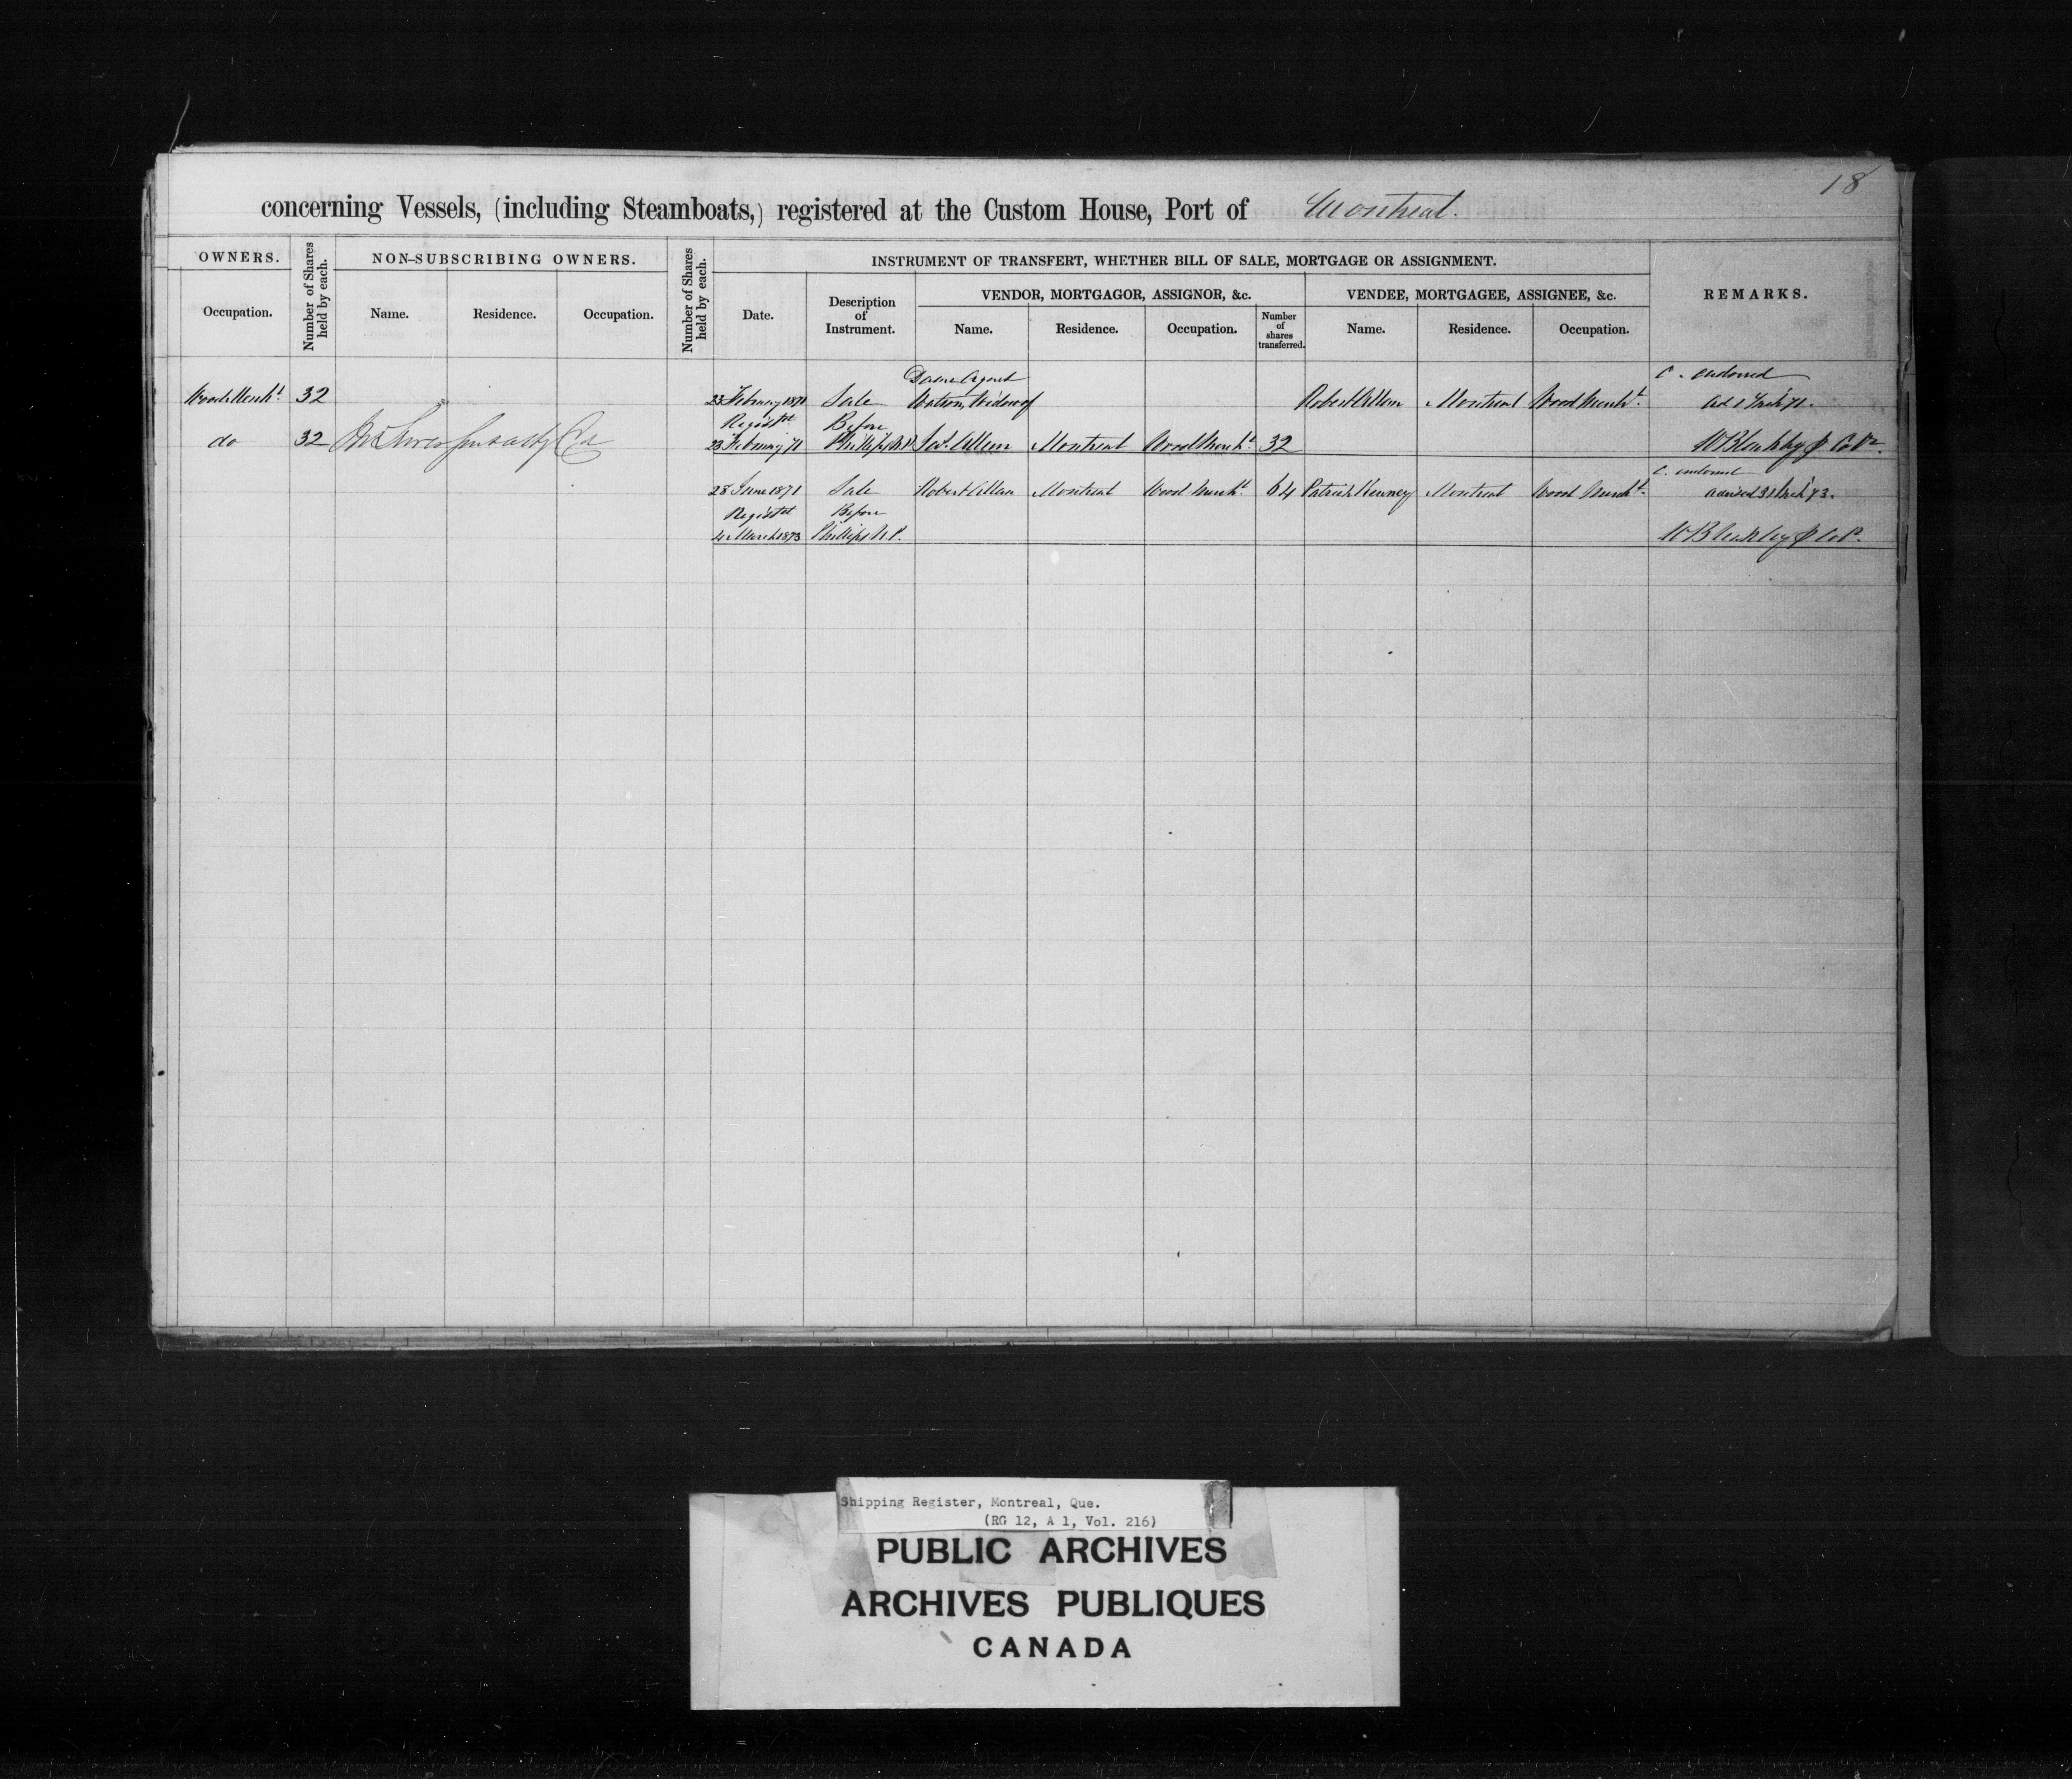 18
concerning Vessels, (including Steamboats,) registered at the Custom House, Port of Montreal.
OWNERS.
Number of Shares held by each.
NON-SUBSCRIBING OWNERS.
Number of Shares held by each.
INSTRUMENT OF TRANSFERT, WHETHER BILL OF SALE, MORTGAGE OR ASSIGNMENT.
REMARKS.
Occupation.
Name. Residence. Occupation.
Date.
Description
of
Instrument.
VENDOR, MORTGAGOR, ASSIGNOR, &c.
VENDEE, MORTGAGEE, ASSIGNEE, &c.
Name. Residence. Occupation.
Number
of
shares
transferred.
Name. Residence. Occupation.
Dame Agnes C. endorsed
Wood Mercht. 32 23 February 1871 Sale Watson, Widow of Robert Allan Montreal Wood Mercht.
Registd Before
do 32 23 February 71 Phillips N.P. Jas. Allan Montreal Wood Mercht. 32
C. endorsed
28 June 1871 Sale Robert Allan Montreal Wood Mercht. 64 Patrick Kenney Montreal Wood Mercht.
Registd Before
4 March 1873 Phillips N.P.
Shipping Register, Montreal, Que.
(RG 12, A 1, Vol. 216)
PUBLIC ARCHIVES
ARCHIVES PUBLIQUES
CANADA